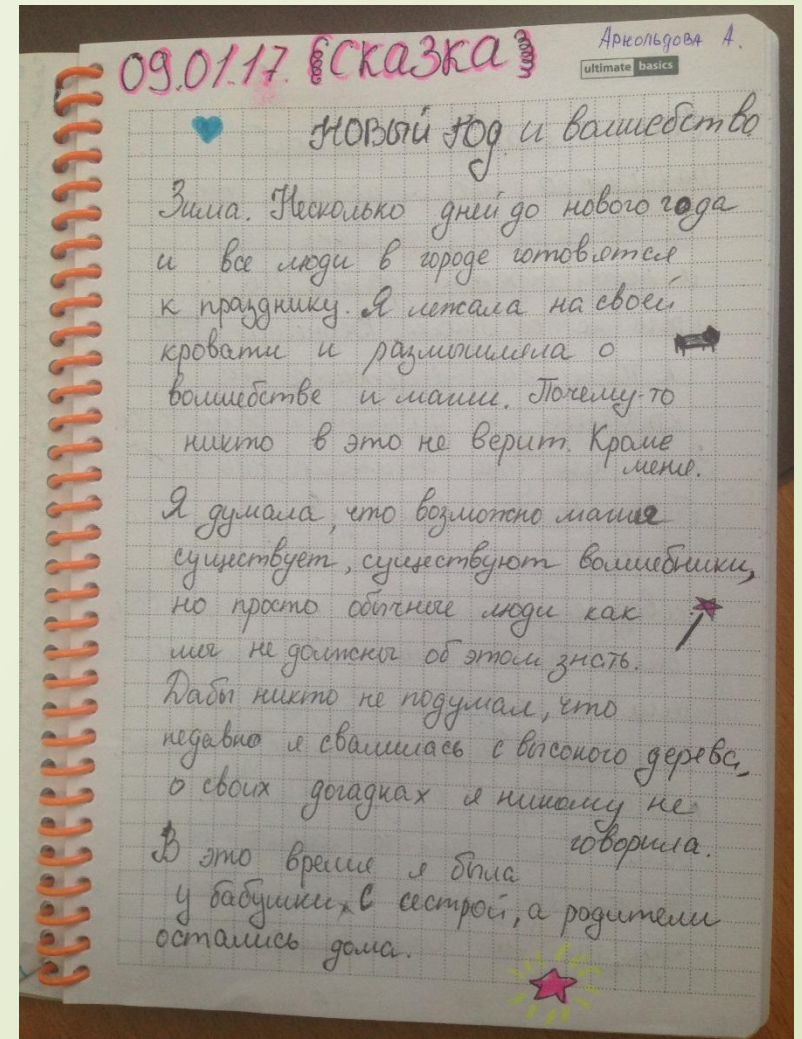 Арнольдова А.
09.01.17. {Сказка}
ultimate basics
Новый год и волшебство
Зима. Несколько дней до нового года
и все люди в городе готовятся
к празднику. Я лежала на своей
кровати и размышляла о
волшебстве и магии. Почему-то
никто в это не верит. Кроме
меня.
Я думала, что возможно магия
существует, существуют волшебники,
но просто обычные люди как
мы не должны об этом знать.
Дабы никто не подумал, что
недавно я свалилась с высокого дерева,
о своих догадках я никому не
говорила.
В это время я была
у бабушки, с сестрой, а родители
остались дома.